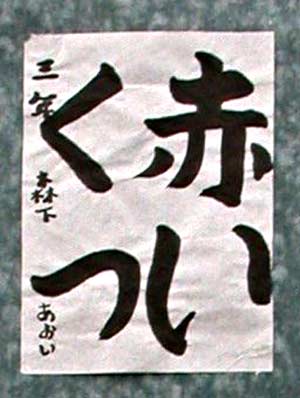 赤い
くつ
三年 森下 あおい